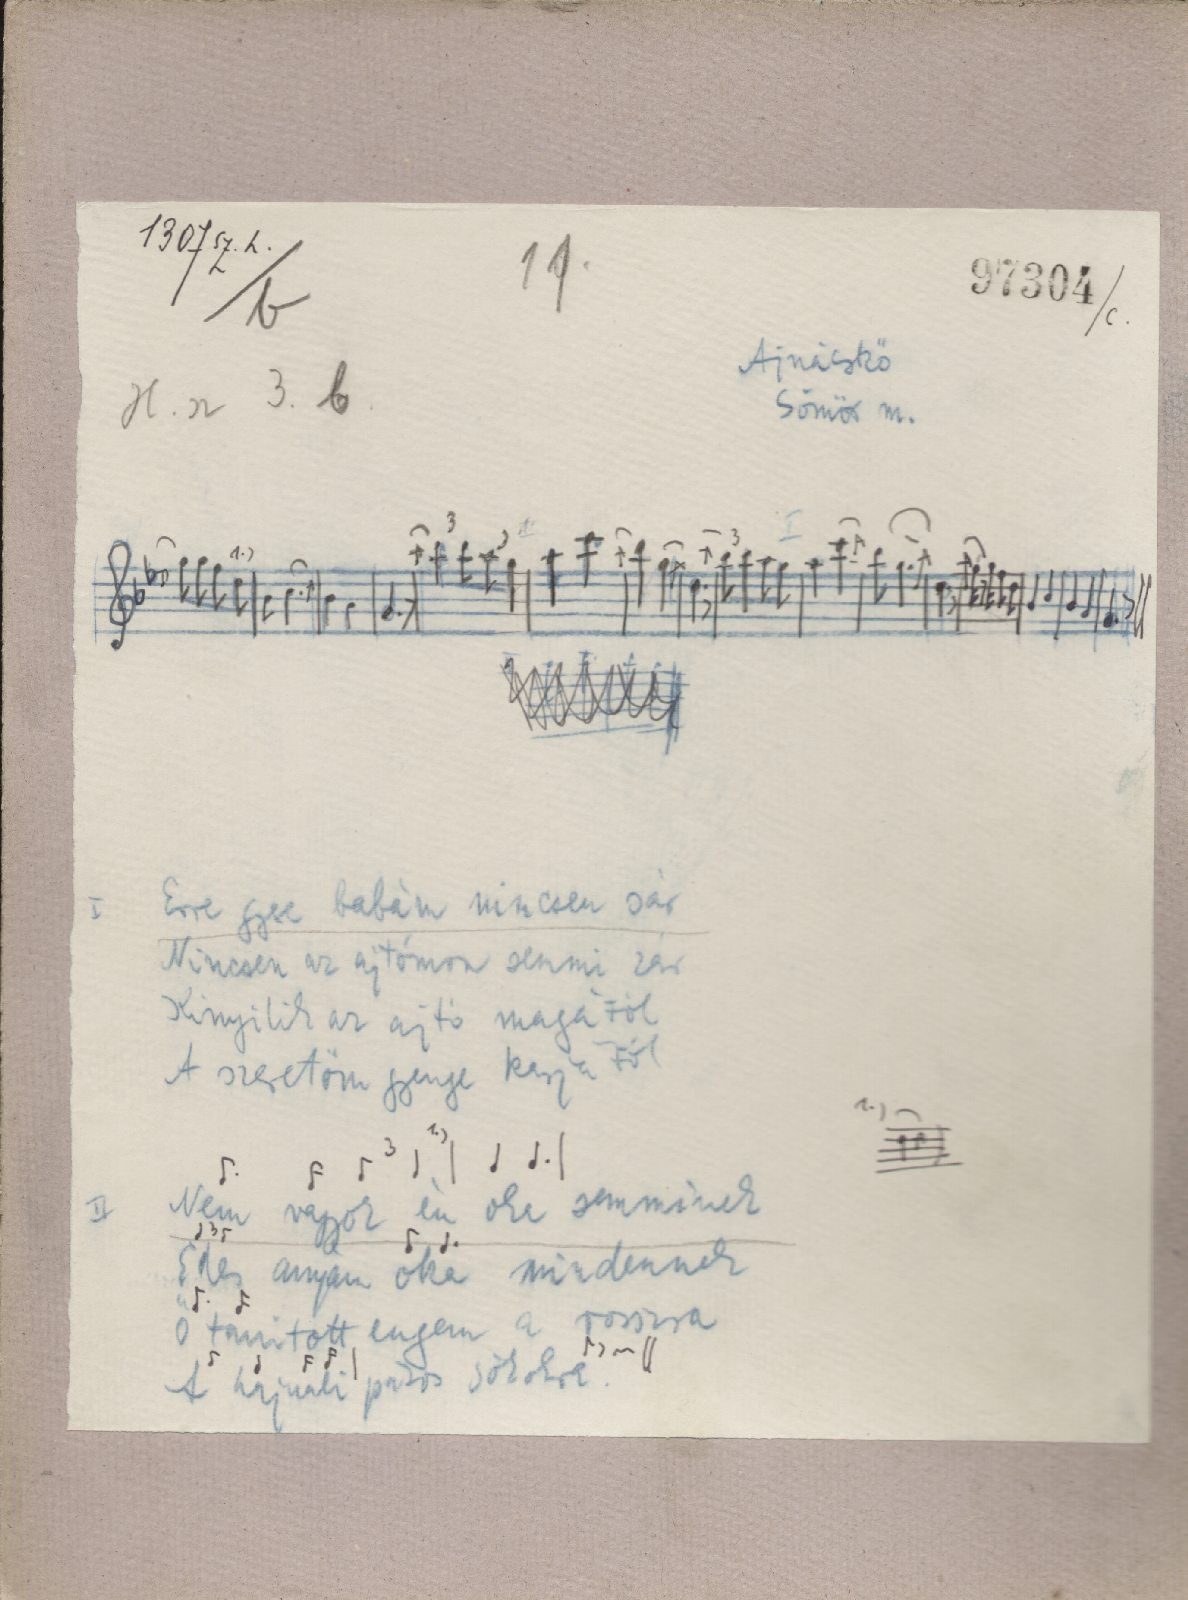 1307 sz. L.
b
11.
97304/c.
H. sz 3. b.
Ajnácskő
Gömör m.
1.) 3 3 3
I
I Erre gyee babám nincsen sár
Nincsen az ajtómon semmi zár
Kinyilik az ajtó magátúl
A szeretőm gyenge
1.)
3 1.)
II Nem vagyok én oka semminek
3
Édes anyám oka mindennek
Ő tanitott engem a rosszra
A hajnali piros